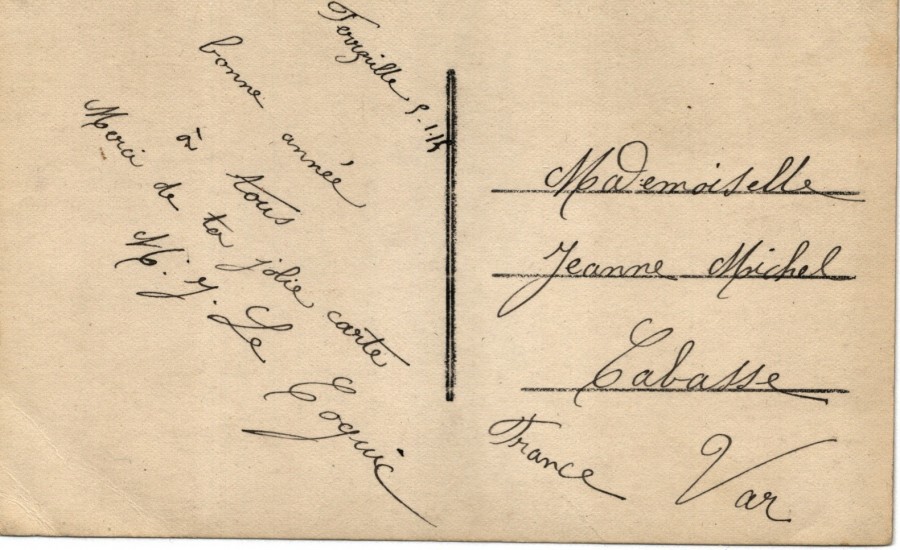 Ferryville 5.1.15
bonne année
à tous
Merci de ta jolie carte
M. J. Le Coguic
Mademoiselle
Jeanne Michel
Cabasse
Var
France